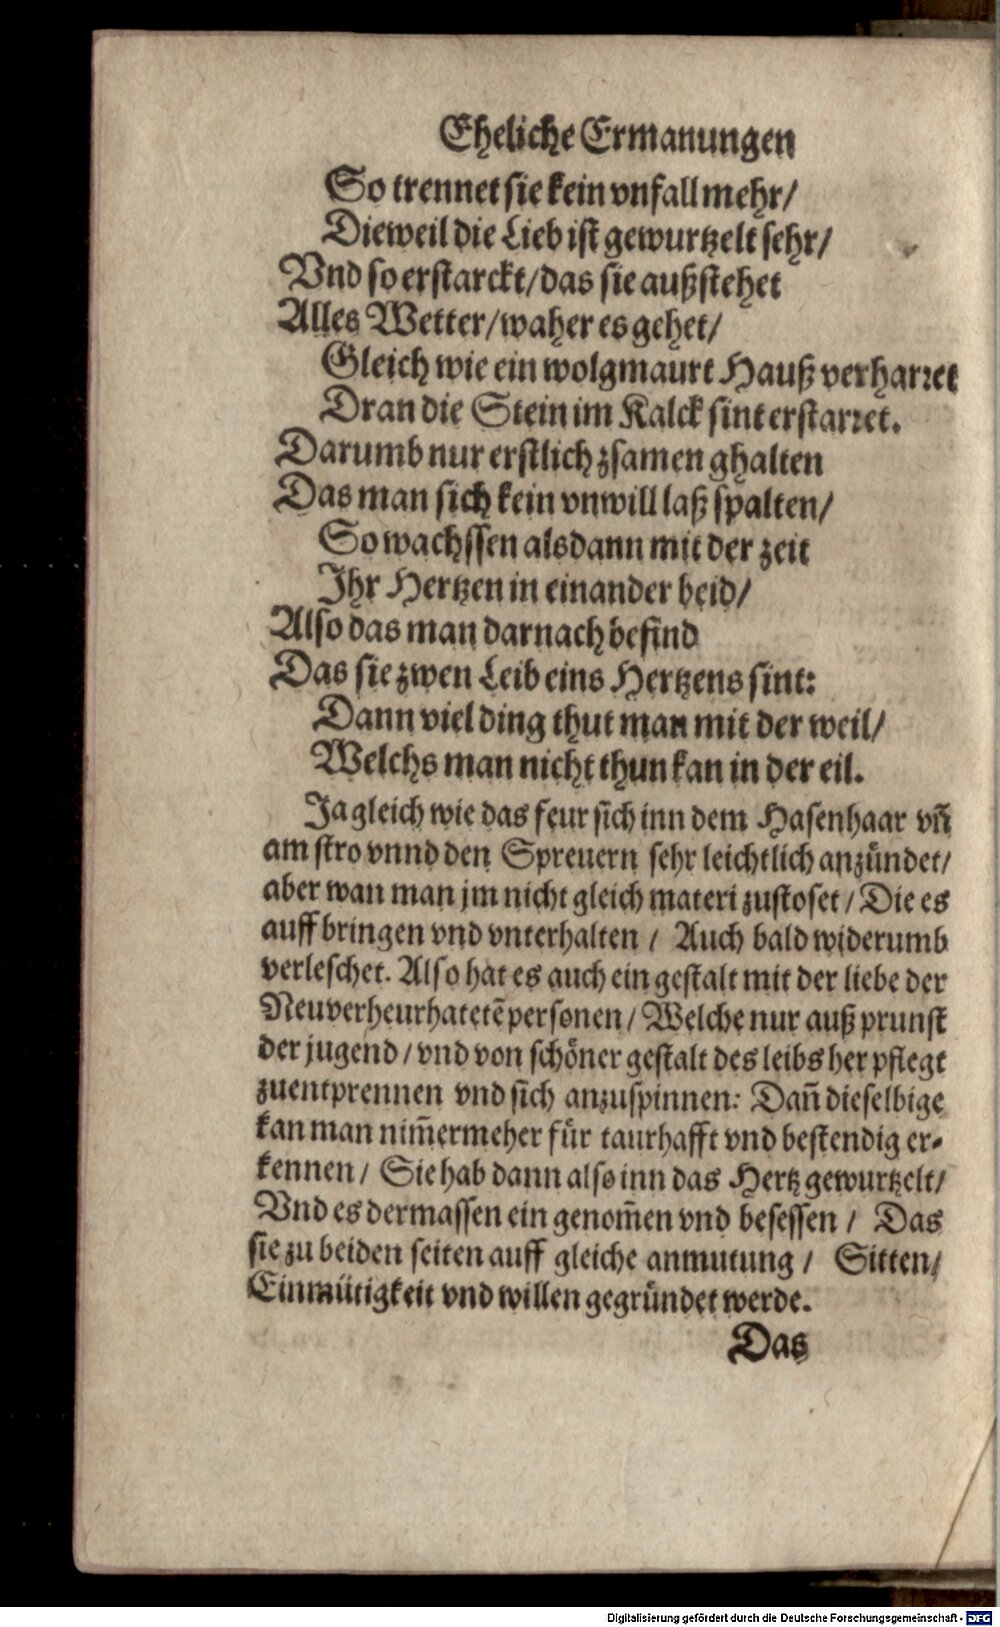 Eheliche Ermanungen
So trennet sie kein vnfall mehr/
Dieweil die Lieb ist gewurtzelt sehr/
Vnd so erstarckt/das sie außstehet
Alles Wetter/waher es gehet/
Gleich wie ein wolgmaurt Hauß verharret
Dran die Stein im Kalck sint erstarret.
Darumb nur erstlich zsamen ghalten
Das man sich kein vnwill laß spalten/
So wachssen alsdann mit der zeit
Ihr Hertzen in einander beid/
Also das man darnach befind
Das sie zwen Leib eins Hertzens sint:
Dann viel ding thut man mit der weil/
Welchs man nicht thun kan in der eil.
Ja gleich wie das feur sich inn dem Hasenhaar vñ
am stro vnnd den Spreuern sehr leichtlich anzündet/
aber wan man jm nicht gleich materi zustoset/Die es
auff bringen vnd vnterhalten / Auch bald widerumb
verleschet. Also hat es auch ein gestalt mit der liebe der
Neuverheurhatetẽ personen/Welche nur auß prunst
der jugend/vnd von schöner gestalt des leibs her pflegt
zuentprennen vnd sich anzuspinnen: Dañ dieselbige
kan man nim̃ermeher für taurhafft vnd bestendig er-
kennen/ Sie hab dann also inn das Hertz gewurtzelt/
Vnd es dermassen ein genom̃en vnd besessen / Das
sie zu beiden seiten auff gleiche anmutung / Sitten/
Einmütigkeit vnd willen gegründet werde.
Das
Digitalisierung gefördert durch die Deutsche Forschungsgemeinschaft - DFG